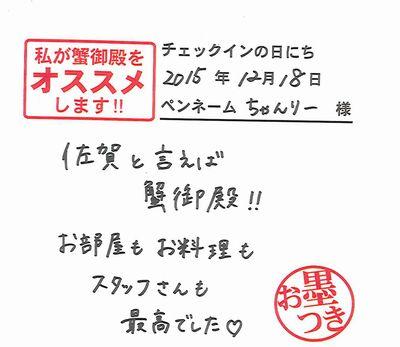 私が蟹御殿を
オススメ
します!!
チェックインの日にち
2015 年 12月 18日
ペンネーム ちゃんりー 様
佐賀と言えば
蟹御殿!!
お部屋も お料理も
スタッフさんも
最高でした♡
お墨つき